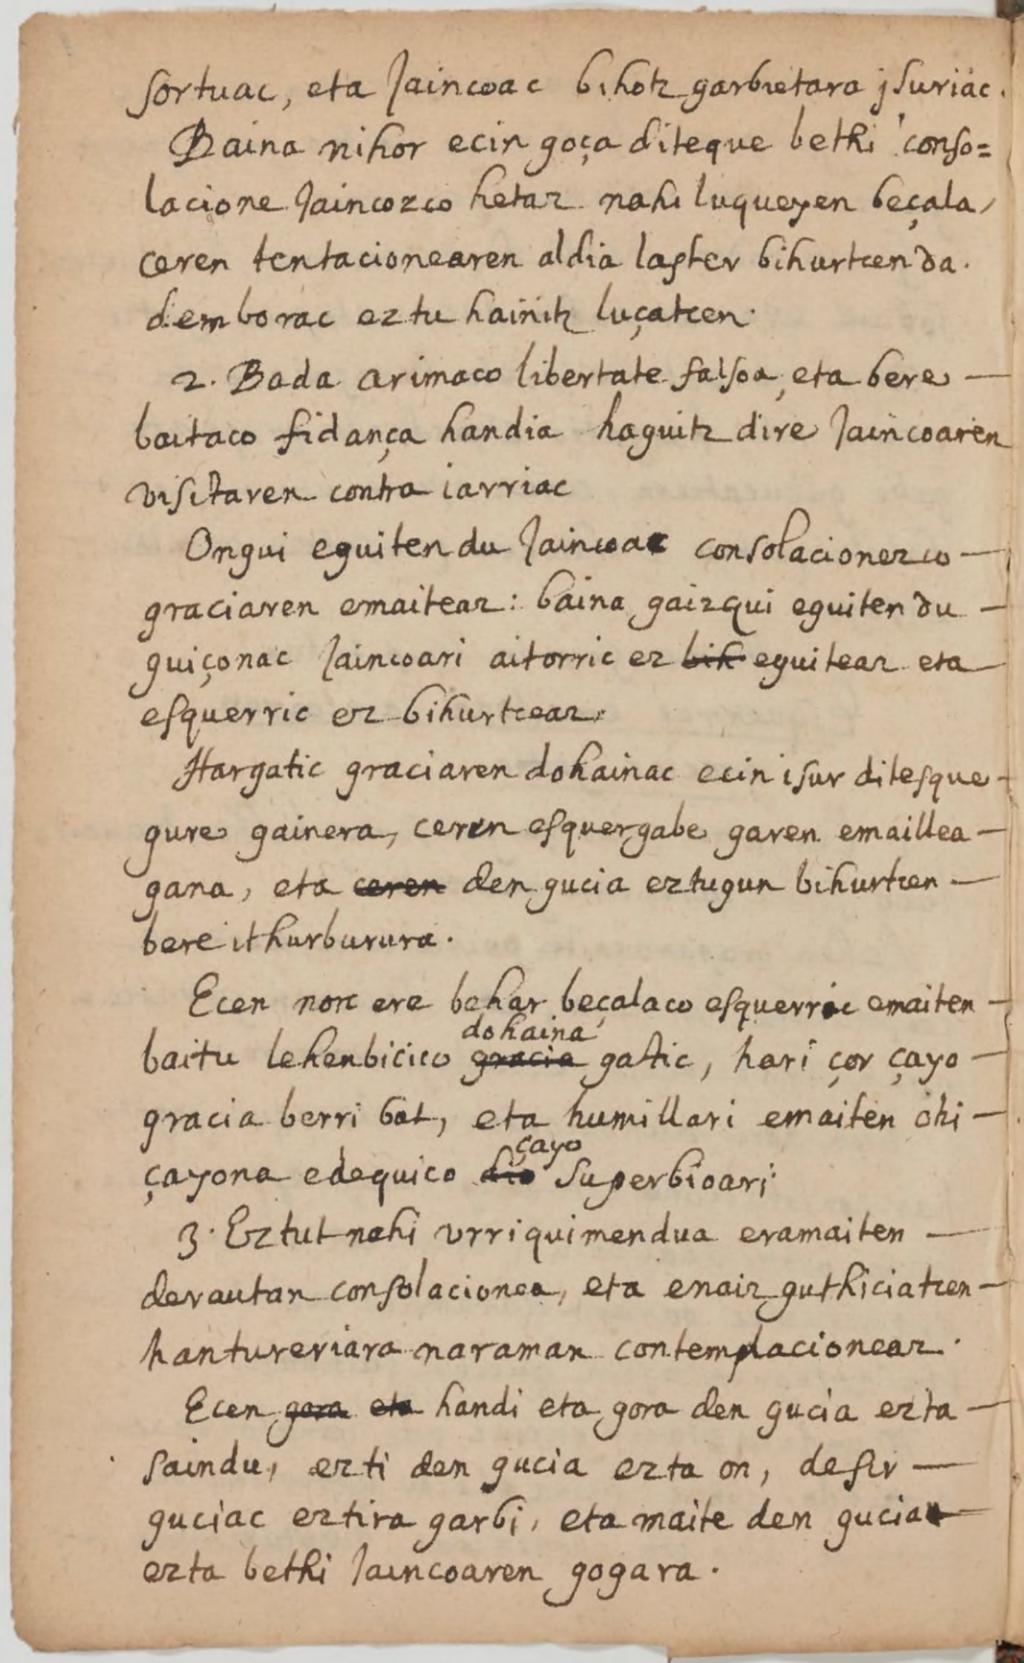 sortuac, eta Jaincoac bihotz garbietara jsuriac.
Baina nihor ecin goça diteque bethi conso=
lacione Jaincozco hetaz nahi luqueyen beçala,
ceren tentacionearen aldia laster bihurtcen da.
demborac eztu hainitz luçatcen.
2. Bada arimaco libertate falsoa, eta bere —
baitaco fidança handia haguitz dire Jaincoaren
visitaren contra iarriac
Ongui eguiten du Jaincoac consolacionezco —
graciaren emaiteaz: baina gaizqui eguiten du —
guiçonac Jaincoari aitorric ez bih eguiteaz eta —
esquerric ez bihurtceaz.
Hargatic graciaren dohainac ecin isur ditesque —
gure gainera, ceren esquergabe garen emaillea —
gana, eta ceren den gucia eztugun bihurtcen —
bere ithurburura.
Ecen norc ere behar beçalaco esquerric emaiten —
dohaina
baitu lehenbicico gracia gatic, hari çor çayo —
gracia berri bat, eta humillari emaiten ohi —
çayo
çayona edequico dio superbioari
3. Eztut nahi vrriquimendua eramaiten —
derautan consolacionea, eta enaiz guthiciatcen —
hantureriara naraman contemplacioneaz.
Ecen gora eta handi eta gora den gucia ezta —
saindu, ezti den gucia ezta on, desir —
guciac eztira garbi, eta maite den gucia —
ezta bethi Jaincoaren gogara.